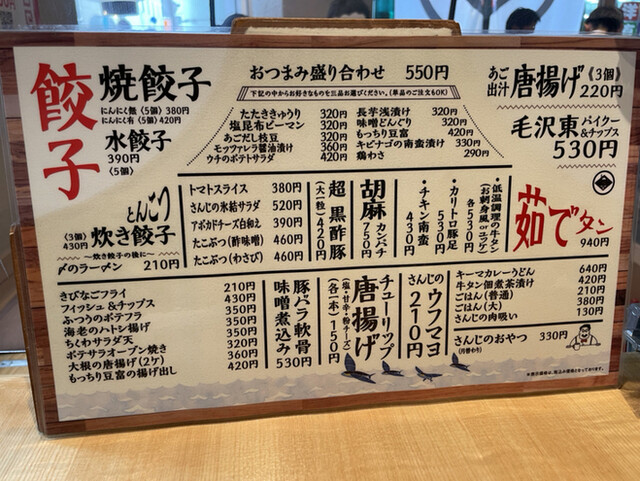 餃子
焼餃子
にんにく無〈5個〉380円
にんにく有〈5個〉420円
水餃子
390円
〈5個〉
おつまみ盛り合わせ 550円
下記の中からお好きなものを三品お選びください。(単品のご注文もOK)
たたききゅうり 320円
塩昆布ピーマン 320円
あごだし枝豆 320円
モッツァレラ醤油漬け 360円
ウチのポテトサラダ 420円
長芋浅漬け 320円
味噌どんぐり 320円
もっちり豆富 420円
キビナゴの南蛮漬け 330円
鶏わさ 290円
あご出汁 唐揚げ《3個》
220円
毛沢東バイクー&チップス
530円
とんこり
炊き餃子
〈3個〉430円
〜炊き餃子の後に〜
〆のラーメン 210円
トマトスライス 380円
さんじの氷結サラダ 520円
アボガドチーズ白和え 390円
たこぶつ(酢味噌) 460円
たこぶつ(わさび) 460円
超黒酢豚
(大一粒)420円
胡麻カンパチ
750円
・チキン南蛮
430円
・カリトロ豚足
530円
・低温調理の牛タン
(お刺身風orユッケ)
各530円
茹でタン
940円
きびなごフライ 210円
フィッシュ&チップス 430円
ふつうのポテフラ 350円
海老のハトシ揚げ 350円
ちくわサラダ天 350円
ポテサラオーブン焼き 320円
大根の唐揚げ(2ケ) 360円
もっちり豆富の揚げ出し 420円
豚バラ軟骨
味噌煮込み
530円
チューリップ
唐揚げ
(塩・甘辛・粉チーズ)
(各一本)150円
さんじの
ウフマヨ
210円
キーマカレーうどん 640円
牛タン佃煮茶漬け 420円
ごはん(普通) 210円
ごはん(大) 380円
さんじの肉吸い 130円
さんじのおやつ 330円
(月替わり)